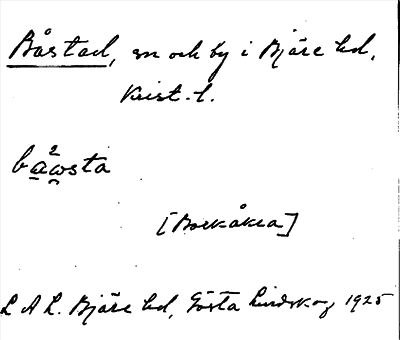 Båstad, sn och by i Bjäre hd,
Krist. l.
bå²wsta
[Barkåkra]
L A L. Bjäre hd, Gösta Lindskog, 1925